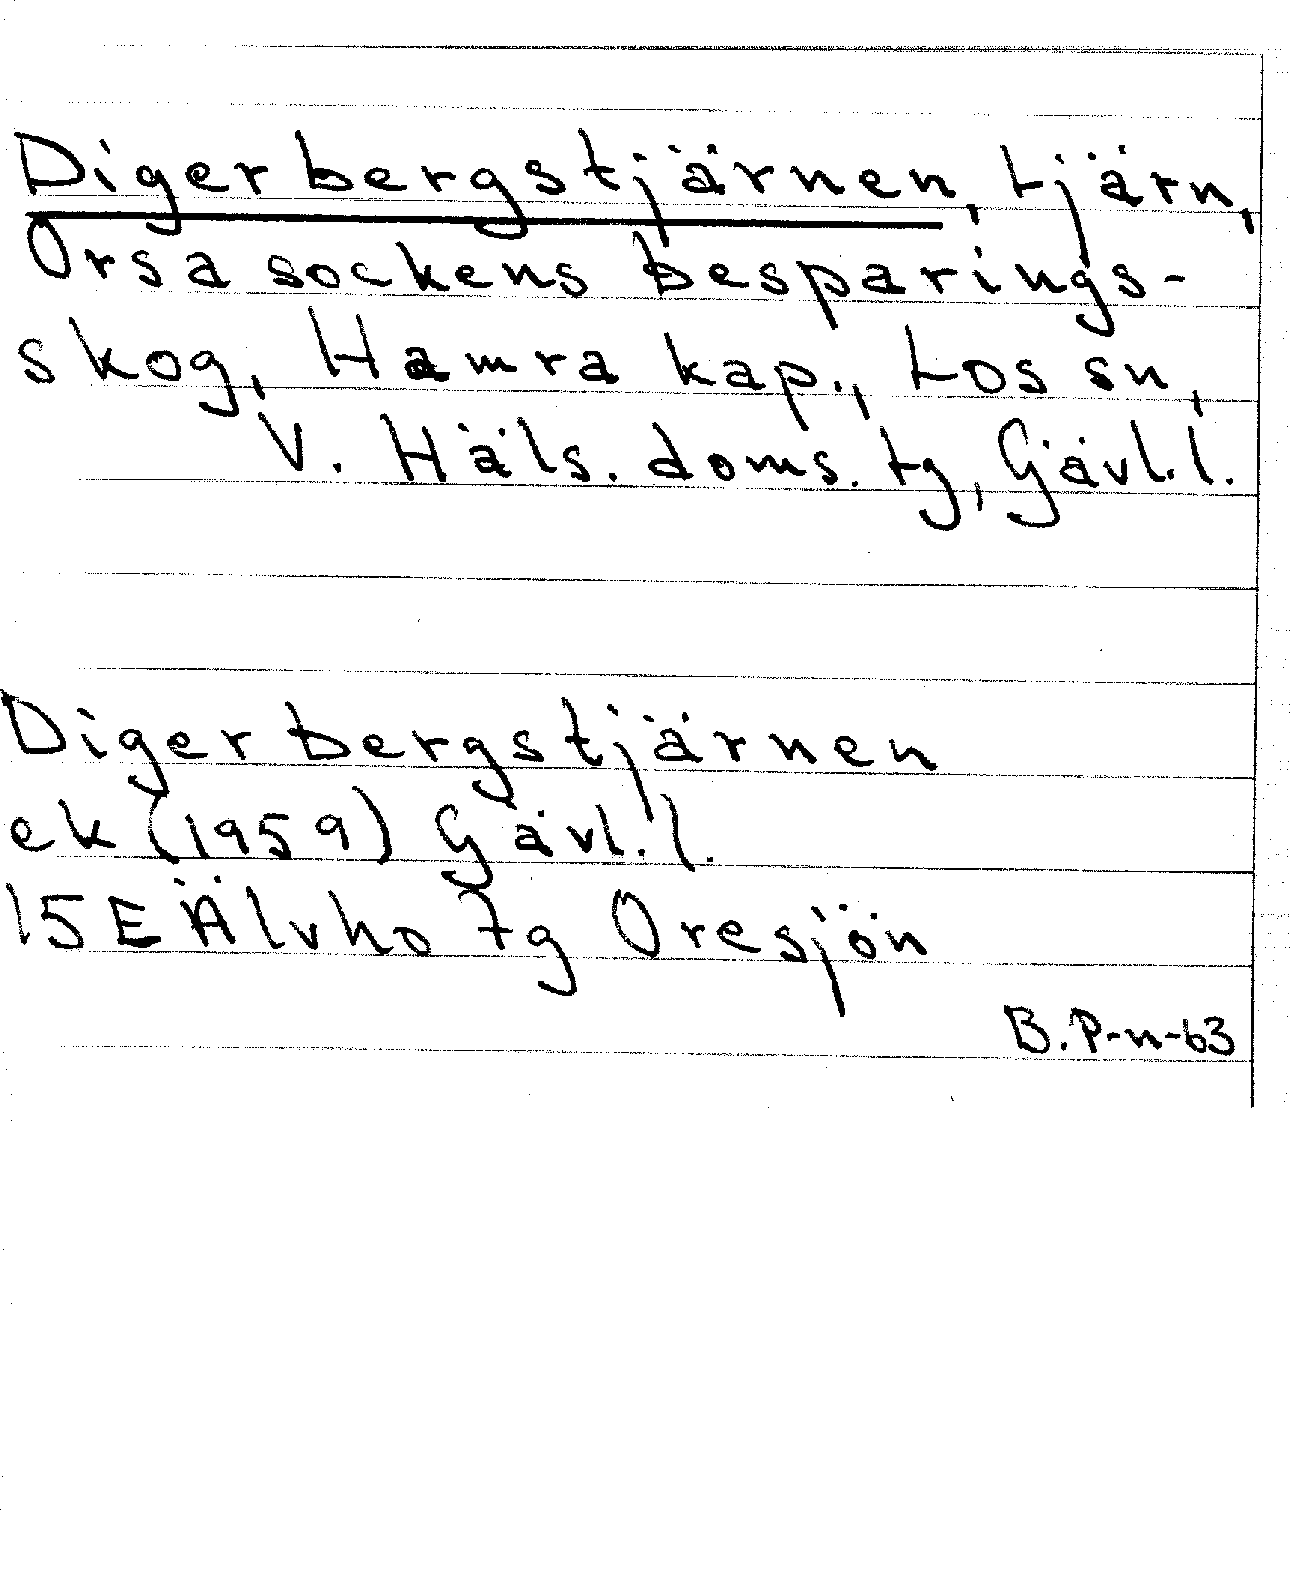 Digerbergstjärnen, tjärn,
Orsa sockens besparings-
skog, Hamra kap., Los sn,
V. Häls. doms. tg, Gävl.l.
Digerbergstjärnen
ek (1959) Gävl.l.
15E Älvho 7g Oresjön
B.P-n-63